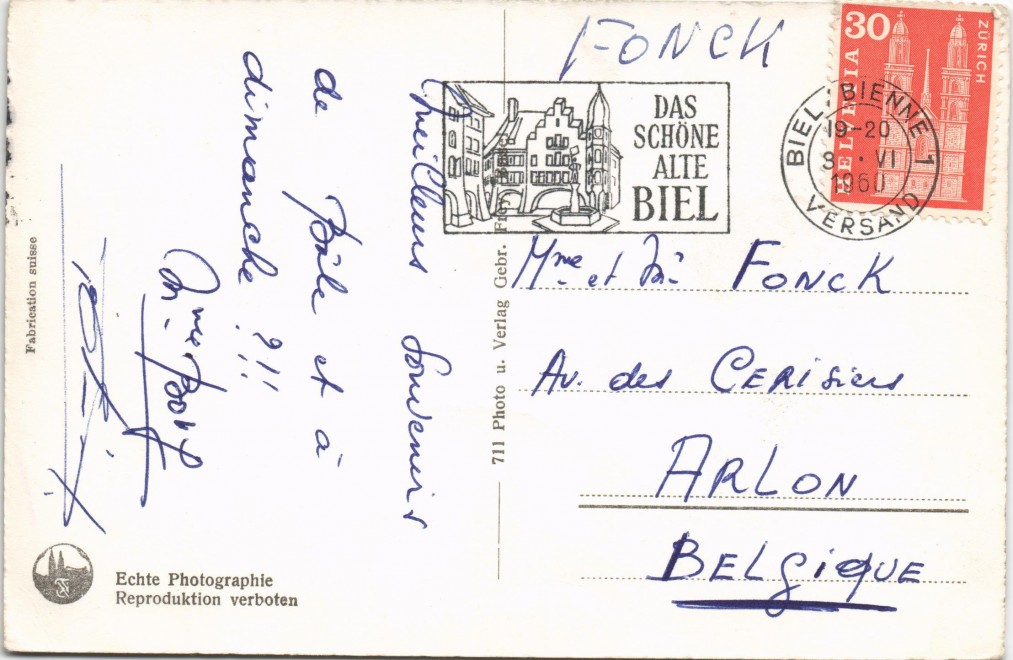 FONCK
30
HELVETIA
ZÜRICH
DAS
SCHÖNE
ALTE
BIEL
BIEL-BIENNE 1
19-20
8.·VI
1960
VERSAND
Meilleurs Souvenirs
de Bâle et à
dimanche !!!
Mme et Mr FONCK
Av. des CERISiers
ARLON
BELgiQUE
711 Photo u. Verlag Gebr.
Fabrication suisse
Echte Photographie
Reproduktion verboten